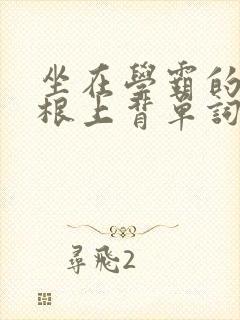 坐在學霸的
根上背單詞
尋飛2